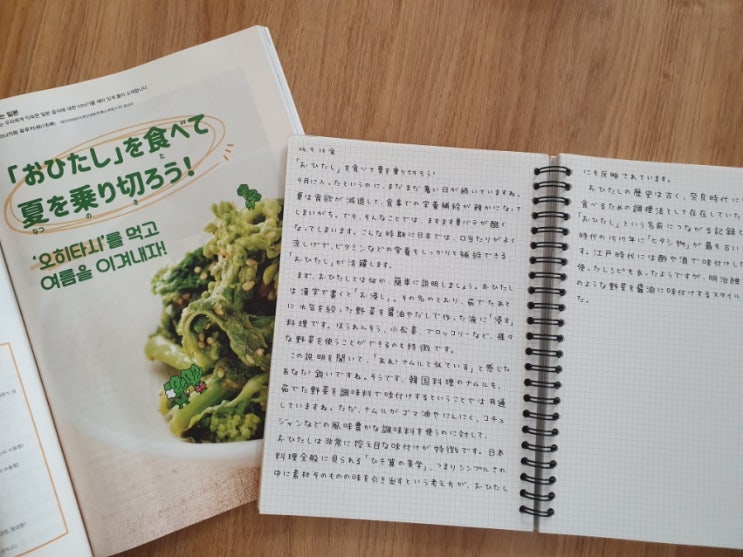 일본
「おひたし」を食べて
夏を乗り切ろう!
なつ の き
'오히타시'를 먹고
여름을 이겨내자!
「おひたし」を食べて夏を乗り切ろう!
9月に入ったというのに、まだまだ暑い日が続いていますね。
夏は食欲が減退して、食事での栄養補給が疎かになって
しまいがち。でも、そんなことでは、ますます夏バテが酷く
なってしまいます。こんな時期に日本では、口当たりがよく
涼しげで、ビタミンなどの栄養もしっかりと補給できる
「おひたし」が活躍します。
まず、おひたしとは何か、簡単に説明しましょう。おひたし
は漢字で書くと「お浸し」。その名のとおり、茹でたあと
に水気を絞った野菜を醤油やだしで作った液に「浸す」
料理です。ほうれんそう、小松菜、ブロッコリーなど、様々
な野菜を使うことができるのも特徴です。
この説明を聞いて、「あれ?ナムルと似ている」と感じた
あなた!鋭いですね。そうです、韓国料理のナムルも、
茹でた野菜を調味料で味付けするということでは共通
していますね。ただ、ナムルがゴマ油やにんにく、コチュ
ジャンなどの風味豊かな調味料を使うのに対して、
おひたしは非常に控え目な味付けが特徴です。日本
料理全般に見られる「ひき算の美学」、つまりシンプルさの
中に素材そのものの味を引き出すという考え方が、おひたし
にも反映されています。
おひたしの歴史は古く、奈良時代に
食べるための調理法として存在していた
「おひたし」という名前につながる記録と
時代の15け年に「ヒタシ物」が最も古い
す。江戸時代には酢や酒で味付けし
使ったレシピもあったようですが、明治維
のような野菜を醤油に味付けするスタイル
た。